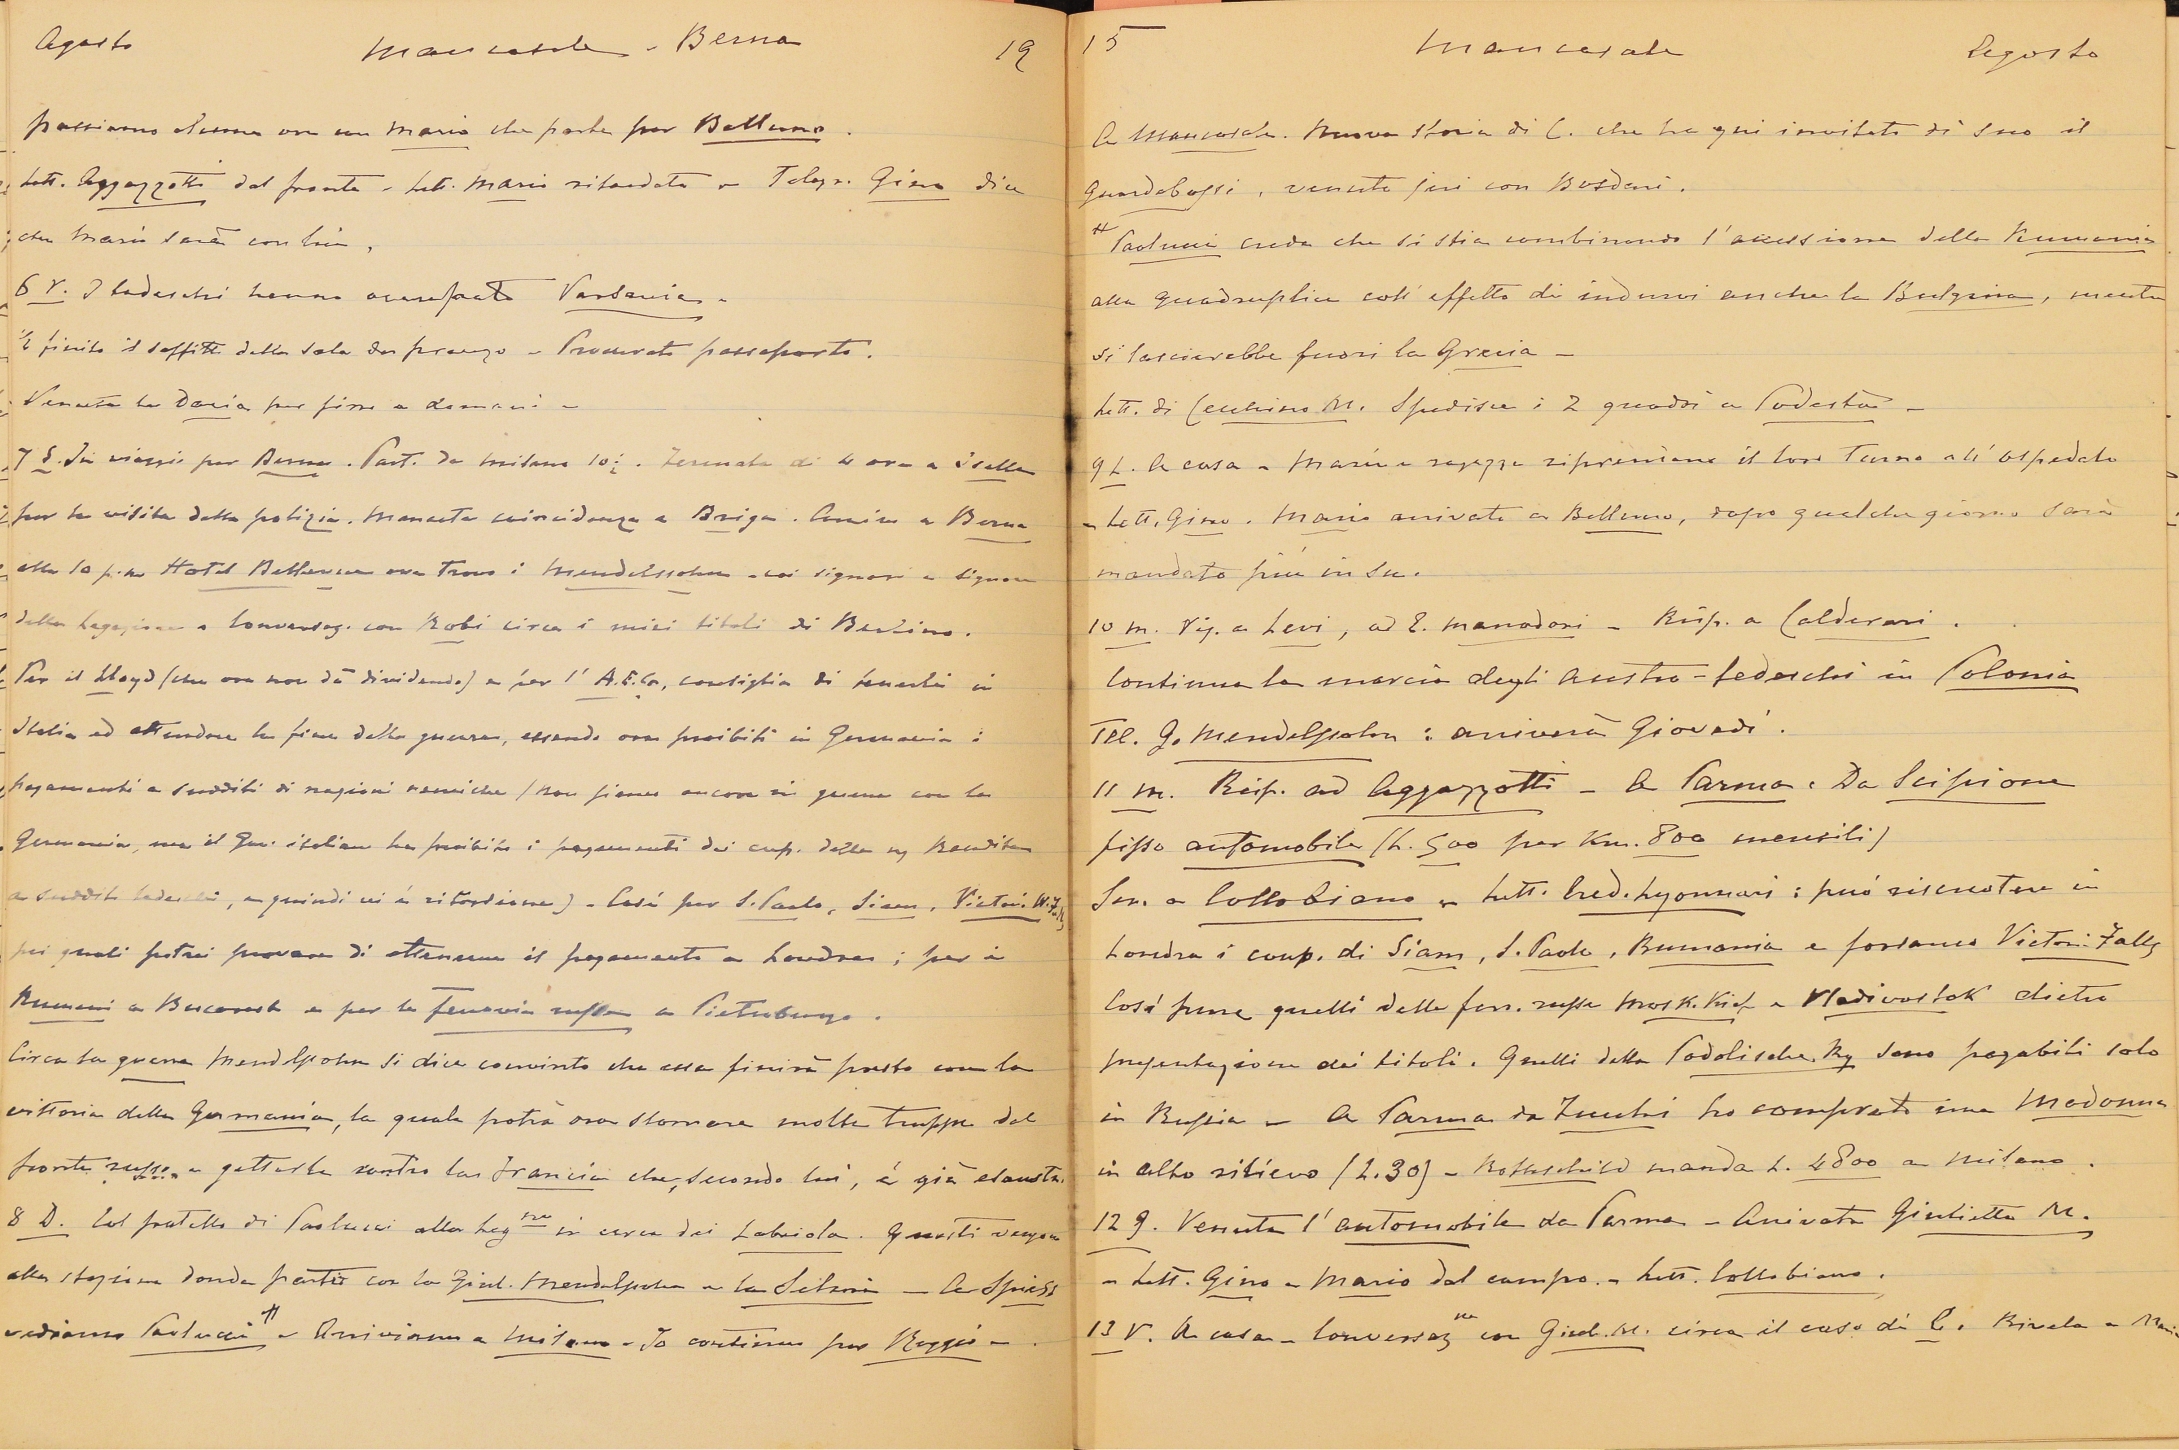 Agosto Mancasale - Berna 19
passiamo alcune ore con Mario che parte per Belluno.
Lett. Aggazzotti dal fronte - Lett. Mario ritardata - Telegr. Gino dice
che Mario sarà con lui.
6 V. I tedeschi hanno occupato Varsavia -
È finito il soffitto della sala da pranzo - Procurato passaporto.
Venuta la Dacia per fino a domani -
7 S. In viaggio per Berna. Part. da Milano 10½. Fermata di 4 ore a Iselle
per la visita della polizia. Mancata coincidenza a Briga. Arrivo a Berna
alle 10 p. Hotel Bellevue ove trovo i Mendelssohn coi signori e signore
della Legazione - Conversaz. con Robi circa i miei titoli di Berlino.
Per il Lloyd (che ora non dà dividendo) e per l'A.E.G., consiglia di tenerli in
Italia ed attendere la fine della guerra, essendo ora proibiti in Germania i
pagamenti a sudditi di nazioni nemiche (non siamo ancora in guerra con la
Germania, ma il Gov. italiano ha proibito i pagamenti dei cup. della Rendita
a sudditi tedeschi, e quindi vi è ritorsione) - Così per S. Paolo, Siam, Victori. Falls
pei quali potrei provare di ottenere il pagamento a Londra; per i
Rumeni a Bucarest e per la ferrovia russa a Pietroburgo.
Circa la guerra Mendelssohn si dice convinto che essa finirà presto con la
vittoria della Germania, la quale potrà ora stornare molte truppe dal
fronte russo e gettarle contro la Francia che, secondo lui, è già esausta.
8 D. Col fratello di Paolucci alla Leg.ne in cerca dei Labriola. Questi vengono
alla stazione donde partii con la Giul. Mendelssohn e la - A Spiess
vediamo Paolucci # - Arriviamo a Milano - Io continuo per Reggio -
15 Mancasale Agosto
A Mancasale. Nuova storia di C. che ha qui invitato di suo il
Guardabassi, venuto jeri con Bosdari.
# Paolucci crede che si stia combinando l'accessione della Rumania
alla quadruplice coll'effetto di indurvi anche la Bulgaria, mentre
si lascierebbe fuori la Grecia -
Lett. di Cecchino M. Spedisce i 2 quadri a Podestà -
9 L. A casa - Maria e ragazze riprendono il loro turno all'ospedale
- Lett. Gino. Mario arrivato a Belluno, dopo qualche giorno sarà
mandato più in su.
10 m. a Levi, ad E. Manodori - Risp. a Calderari.
Continua la marcia degli austro-tedeschi in Polonia
Tel. G. Mendelssohn: arriverà Giovedì.
11 m. Risp. ad Aggazzotti - A Parma: Da Scipione
fisso automobile (L. 500 per Km. 800 mensili)
Scr. a Collobiano - Lett. Cred. Lyonnais: può riscuotere in
Londra i coup. di Siam, S. Paolo, Rumania e forsanco Victori. Falls
Così pure quelli delle ferr. russe Mosk. Kief e Vladivostok dietro
presentazione dei titoli. Quelli della Podolische Ry sono pagabili solo
in Russia - A Parma da Zucchi ho comprato una Madonna
in alto rilievo (L. 30) - Rothschild manda L. 4800 a Milano.
12 g. Venuta l'automobile da Parma - Arrivata Giulietta M.
- Lett. Gino e Mario dal campo. - Lett. Collobiano.
13 V. A casa - Conversaz.ne con Giul. M. circa il caso di C. Rivela a Maria